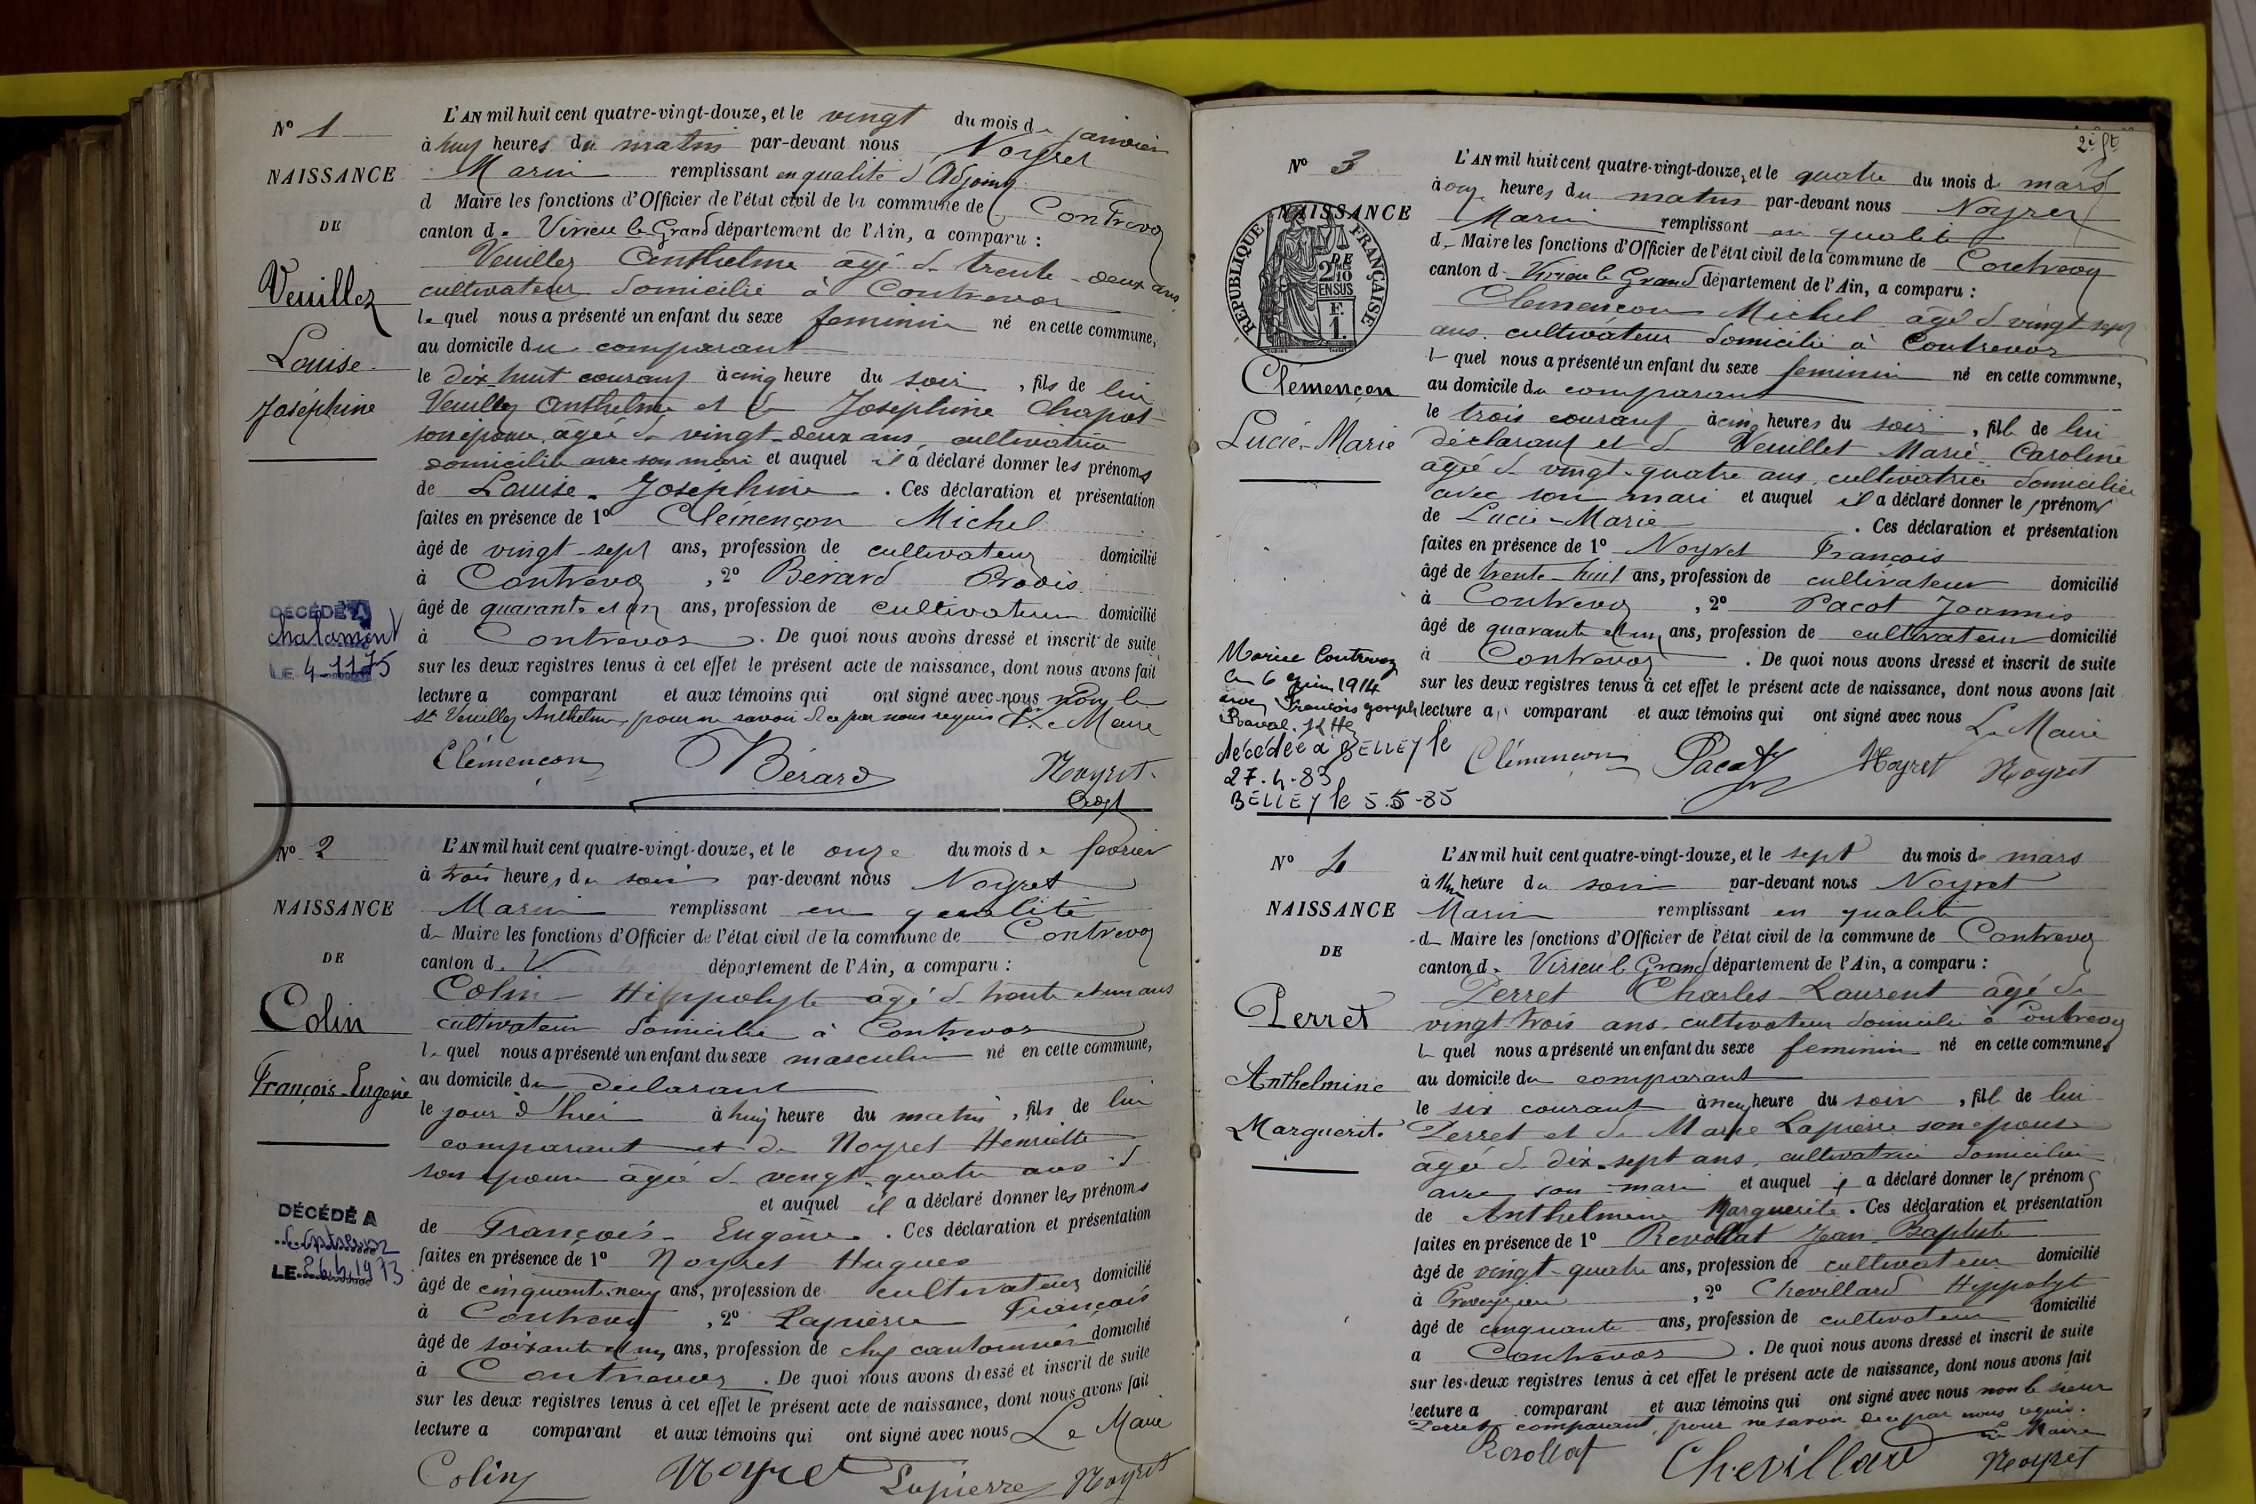 N° 1
NAISSANCE
DE
Veuillez
Louise
Joséphine
DÉCÉDÉ A
chalamont
LE 4-11-75
L'AN mil huit cent quatre-vingt-douze, et le vingt du mois de janvier
à huit heures du matin par-devant nous Noyret
Marin remplissant en qualité d'Adjoint
d Maire les fonctions d'Officier de l'état civil de la commune de Contrevoz
canton de Virieu le Grand département de l'Ain, a comparu :
Veuillez Anthelme agé de trente-deux ans
cultivateur domicilié à Contrevoz
lequel nous a présenté un enfant du sexe feminin né en cette commune,
au domicile du comparant
le dix huit courant à cinq heure du soir, fils de lui
Veuillez Anthelme et de Joséphine Chapot
son épouse, âgée de vingt-deux ans, cultivatrice
domiciliée avec son mari et auquel il a déclaré donner les prénoms
de Louise-Joséphine. Ces déclaration et présentation
faites en présence de 1° Clémençon Michel
âgé de vingt-sept ans, profession de cultivateur domicilié
à Contrevoz, 2° Bérard
âgé de quarante et un ans, profession de cultivateur domicilié
à Contrevoz. De quoi nous avons dressé et inscrit de suite
sur les deux registres tenus à cet effet le présent acte de naissance, dont nous avons fait
lecture a comparant et aux témoins qui ont signé avec nous non le
sr Veuillez Anthelme, pour ne savoir de ce par nous requis Le Maire
Clémençon Bérard Noyret
Adjt
N° 2
NAISSANCE
DE
Colin
François-Eugène
DÉCÉDÉ A
Contrevoz
LE 26.4.1973
L'AN mil huit cent quatre-vingt-douze, et le onze du mois de fevrier
à trois heures du soir par-devant nous Noyret
Marin remplissant en qualité
de Maire les fonctions d'Officier de l'état civil de la commune de Contrevoz
canton d. V département de l'Ain, a comparu :
Colin Hippolyte agé de trente et un ans
cultivateur domicilié à Contrevoz
lequel nous a présenté un enfant du sexe masculin né en cette commune,
au domicile du déclarant
le jour d'hui à huit heure du matin, fils de lui
comparant et de Noyret Henriette
son épouse agée de vingt-quatre ans d
et auquel il a déclaré donner les prénoms
de François-Eugène. Ces déclaration et présentation
faites en présence de 1° Noyret Hugues
âgé de cinquante-neuf ans, profession de cultivateur domicilié
à Contrevoz, 2° Lapierre François
âgé de soixante et un ans, profession de chef cantonnier domicilié
à Contrevoz. De quoi nous avons dressé et inscrit de suite
sur les deux registres tenus à cet effet le présent acte de naissance, dont nous avons fait
lecture a comparant et aux témoins qui ont signé avec nous Le Maire
Colin Noyret Lapierre Noyret
N° 3
NAISSANCE
DE
RÉPUBLIQUE FRANÇAISE
2/10
EN SUS
F.
1.
Clémençon
Lucie-Marie
Mariée Contrevoz
le 6 juin 1914
avec François Joseph
décédée à BELLEY le
27-4-85
BELLEY le 5.5-85
L'AN mil huit cent quatre-vingt-douze, et le quatre du mois de mars
à onze heures du matin par-devant nous Noyret
Marin remplissant en qualité
de Maire les fonctions d'Officier de l'état civil de la commune de Contrevoz
canton d Virieu le Grand département de l'Ain, a comparu :
Clemençon Michel agé de vingt sept
ans cultivateur domicilié à Contrevoz
lequel nous a présenté un enfant du sexe feminin né en cette commune,
au domicile du comparant
le trois courant à cinq heures du soir, fille de lui
déclarant et de Veuillet Marie Caroline
agée de vingt-quatre ans, cultivatrice domiciliée
avec son mari et auquel il a déclaré donner les prénoms
de Lucie-Marie. Ces déclaration et présentation
faites en présence de 1° Noyret François
âgé de trente-huit ans, profession de cultivateur domicilié
à Contrevoz, 2° Pacot Joannis
âgé de quarante et un ans, profession de cultivateur domicilié
à Contrevoz. De quoi nous avons dressé et inscrit de suite
sur les deux registres tenus à cet effet le présent acte de naissance, dont nous avons fait
lecture a comparant et aux témoins qui ont signé avec nous Le Maire
Clémençon Pacot Noyret Noyret
N° 4
NAISSANCE
DE
Perret
Anthelmine
Marguerite
L'AN mil huit cent quatre-vingt-douze, et le sept du mois de mars
à une heure du soir par-devant nous Noyret
Marin remplissant en qualité
de Maire les fonctions d'Officier de l'état civil de la commune de Contrevoz
canton d. Virieu le Grand département de l'Ain, a comparu :
Perret Charles-Laurent agé de
vingt trois ans cultivateur domicilié à Contrevoz
lequel nous a présenté un enfant du sexe feminin né en cette commune,
au domicile du comparant
le six courant à neuf heure du soir, fille de lui
Perret et de Marie Lapierre son épouse
agée de dix-sept ans, cultivatrice domiciliée
avec son mari et auquel il a déclaré donner les prénoms
de Anthelmine Marguerite. Ces déclaration et présentation
faites en présence de 1° Revollat Jean-Baptiste
âgé de vingt-quatre ans, profession de cultivateur domicilié
à, 2° Chevillard Hyppolyte
âgé de cinquante ans, profession de cultivateur domicilié
a Contrevoz. De quoi nous avons dressé et inscrit de suite
sur les deux registres tenus à cet effet le présent acte de naissance, dont nous avons fait
lecture a comparant et aux témoins qui ont signé avec nous non le sieur
Perret comparant, pour ne savoir de ce par nous requis.
Le Maire
Revollat Chevillard Noyret